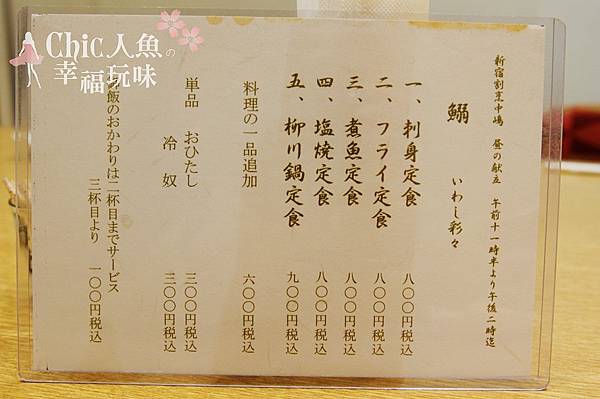 新宿割烹中嶋　昼の献立　午前十一時半より午後二時迄
鰯　いわし彩々
一、刺身定食　八〇〇円税込
二、フライ定食　八〇〇円税込
三、煮魚定食　八〇〇円税込
四、塩焼定食　八〇〇円税込
五、柳川鍋定食　九〇〇円税込
料理の一品追加　六〇〇円税込
単品　おひたし　三〇〇円税込
冷奴　三〇〇円税込
飯のおかわりは二杯目までサービス
三杯目より　一〇〇円税込
Chic人魚の
幸福玩味